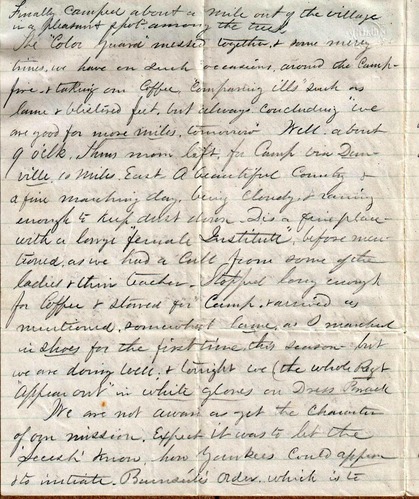 Finally camped about a mile out of the village
in a pleasant spot among the trees
The "Color Guard messed together, & some merry
times, we have on such occasions, around the Camp-
fire & taking our Coffee, Comparing ills" such as
lame & blistered feet, but always concluding "we
are good for more miles, tomorrow" Well, about
9 o'clk, this morn left, for Camp via Dan-
ville, 10 miles, East A beautiful Country &
a fine marching day, being cloudy & raining
enough to keep dust down. D is a fine place
with a large "female Institute", before men-
tioned, as we had a Call, from some of the
ladies & their teacher. Stopped long enough
for toffee & started for Camp. arrived as
mentioned, somewhat lame, as I marched
in shoes for the first time this season but
we are doing well. & tonight we (the whole Regt
appear out" in white gloves on Dress Parade
We are not aware as yet the Character
of our mission, Expect it was to let the
Secesh Know, how Yankees Could appear
& to initiate Burnside's Order, which is to